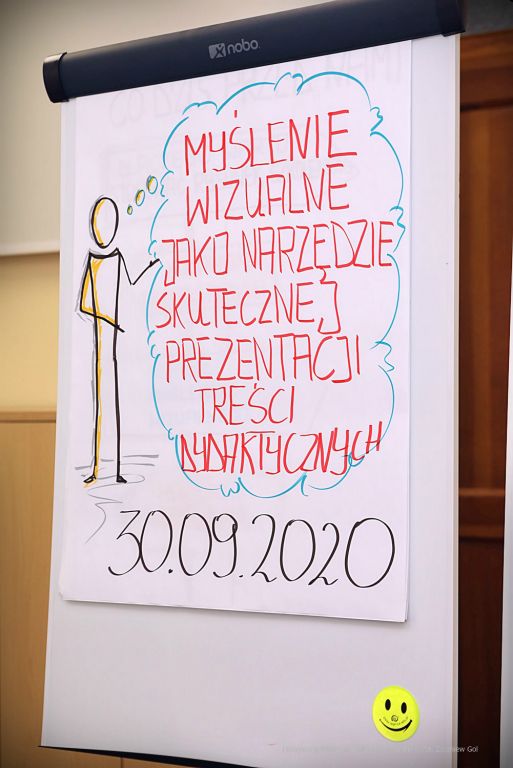 nobo
MYŚLENIE
WIZUALNE
JAKO NARZĘDZIE
SKUTECZNEJ
PREZENTACJI
TREŚCI
DYDAKTYCZNYCH
30.09.2020